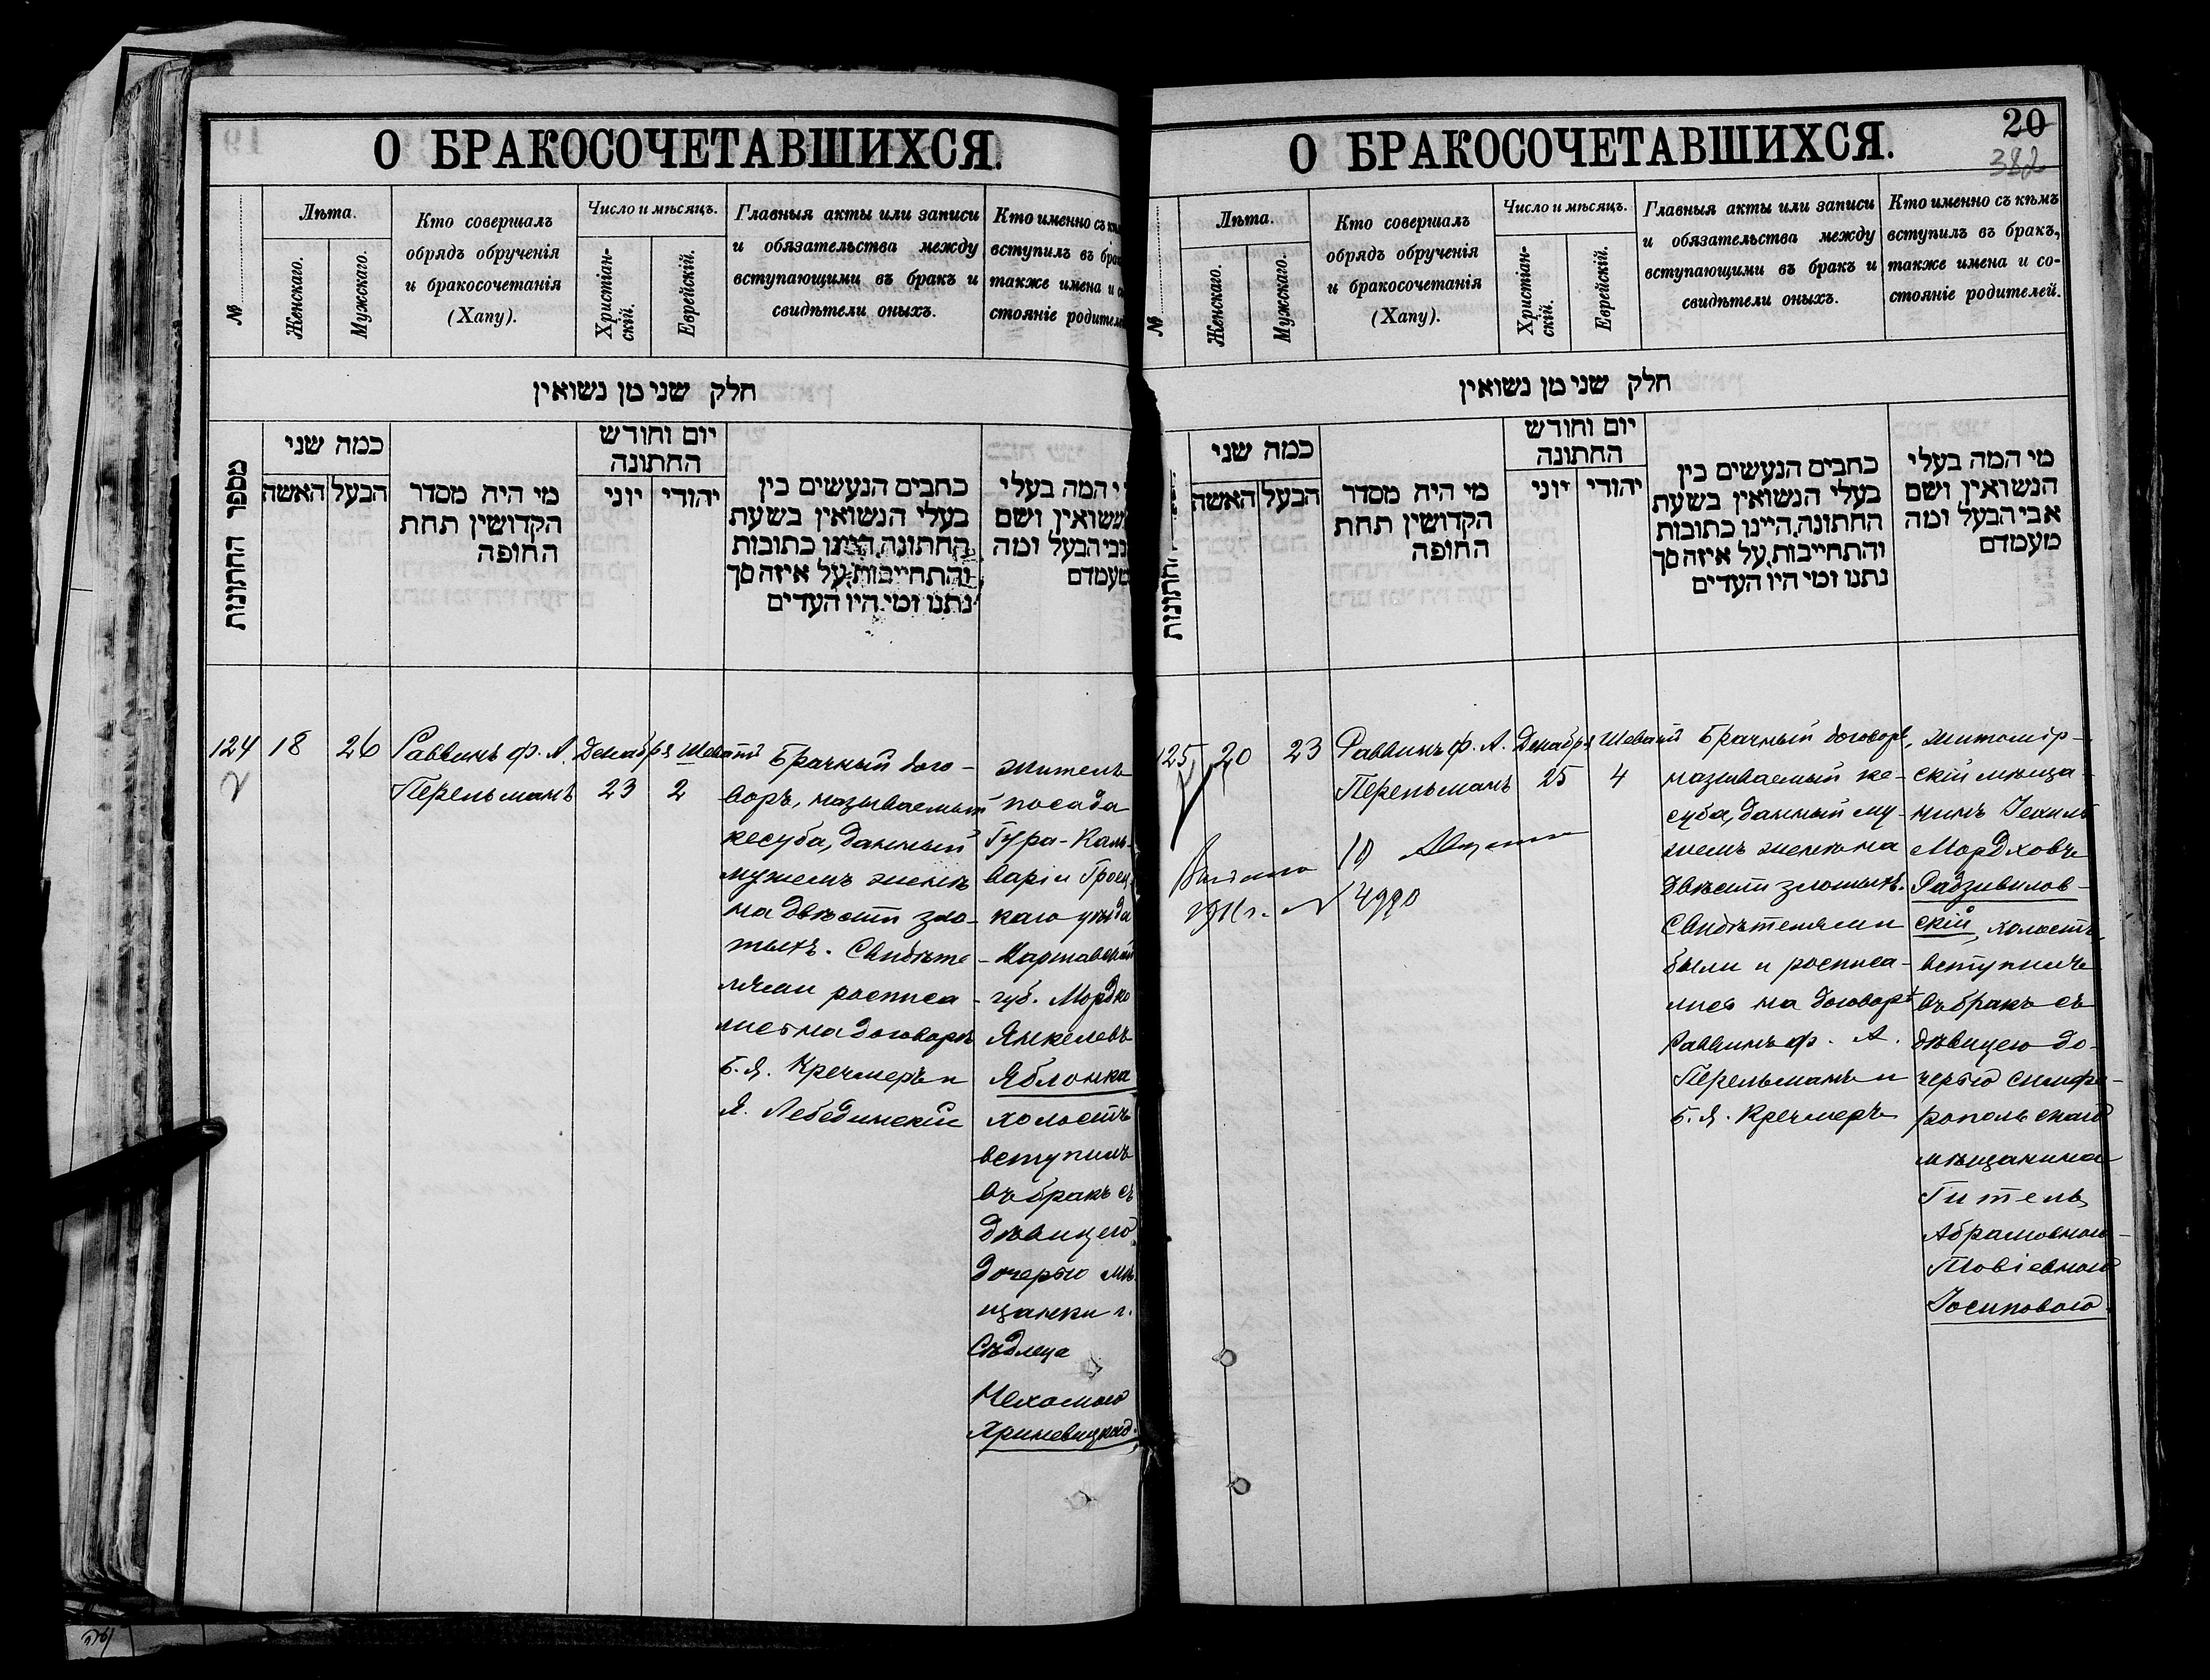 О БРАКОСОЧЕТАВШИХСЯ.
№
Лѣта.
Женскаго.
Мужскаго.
Кто совершалъ
обрядъ обрученія
и бракосочетанія
(Хапу).
Число и мѣсяцъ.
Христіан-
скій.
Еврейскій.
Главныя акты или записи
и обязательства между
вступающими въ бракъ и
свидѣтели оныхъ.
Кто именно съ
вступилъ въ
также имена и
стояніе
חלק שני מן נשואין
מספר החתונות
כמה שני
האשה
הבעל
מי היה מסדר
הקדושין תחת
החופה
יום וחודש
החתונה
יוני
יהודי
כתבים הנעשים בין
בעלי הנשואין בשעת
החתונה, היינו כתובות
והתחייבות, על איזה סך
נתנו ומי היו העדים
המה בעלי
ושם
הבעל ומה
מעמדם
124
2
18
26
Раввинъ ф. А.
Перельманъ
Декабря
23
Шеватъ
2
Брачный дого-
воръ, называемый
кесуба, данный
мужемъ женѣ
на двѣсти зло-
тыхъ. Свидѣте-
лями росписа-
лись на договорѣ
Б. Я. Кречмеръ и
Я. Лебединскій
житель
посада
Гура-Каль-
варіи Гроец-
каго уѣзда
Варшавской
губ. Мордко
Янкелевъ
Яблонка
холостъ
вступилъ
въ бракъ съ
дѣвицею
дочерью мѣ-
щанки г.
Сѣдлеца
Нехомою
Хриневицкой.
О БРАКОСОЧЕТАВШИХСЯ.
20
382
№
Лѣта.
Женскаго.
Мужскаго.
Кто совершалъ
обрядъ обрученія
и бракосочетанія
(Хапу).
Число и мѣсяцъ.
Христіан-
скій.
Еврейскій.
Главныя акты или записи
и обязательства между
вступающими въ бракъ и
свидѣтели оныхъ.
Кто именно съ кѣмъ
вступилъ въ бракъ,
также имена и со-
стояніе родителей.
חלק שני מן נשואין
החתונות
כמה שני
האשה
הבעל
מי היה מסדר
הקדושין תחת
החופה
יום וחודש
החתונה
יוני
יהודי
כתבים הנעשים בין
בעלי הנשואין בשעת
החתונה, היינו כתובות
והתחייבות, על איזה סך
נתנו ומי היו העדים
מי המה בעלי
הנשואין, ושם
אבי הבעל ומה
מעמדם
125
20
23
Раввинъ ф. А.
Перельманъ
Декабря
25
Шеватъ
4
10 Августа
1911 г. № 4990
Брачный договоръ,
называемый ке-
суба, данный му-
жемъ женѣ на
двѣсти злотыхъ.
Свидѣтелями
были и росписа-
лись на договорѣ
Раввинъ ф. А.
Перельманъ и
Б. Я. Кречмеръ
житомір-
скій мѣща-
нинъ Іехиль
Мордховъ
Радзивилов-
скій, холостъ,
вступилъ
въ бракъ съ
дѣвицею до-
черью симфе-
ропольскаго
мѣщанина
Гитель
Абрамовной-
Товіевной
Іосиповой.